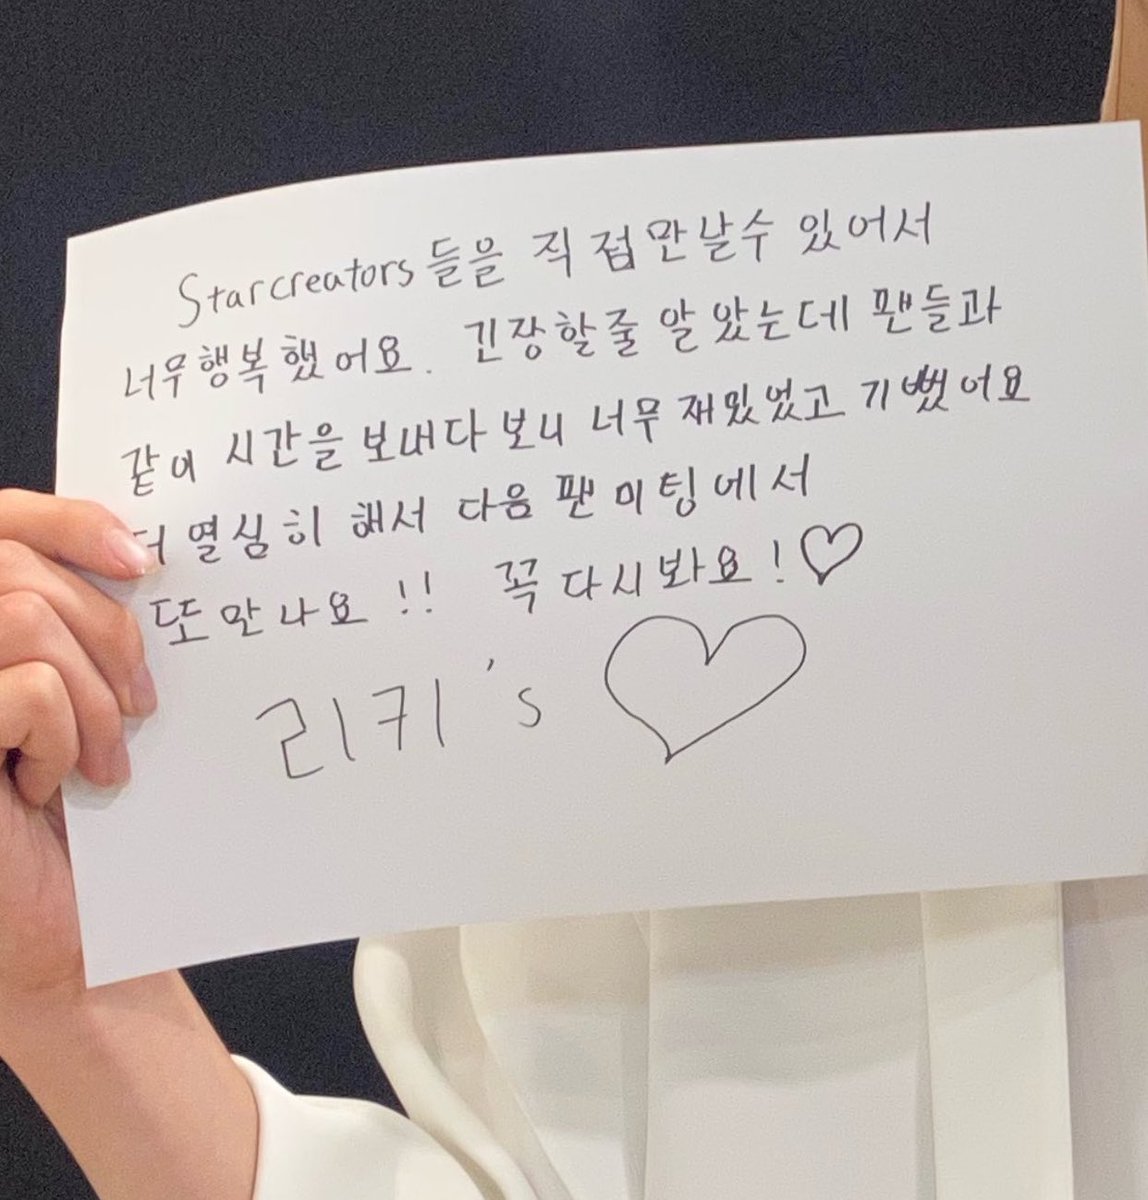 Starcreators들을 직접만날수 있어서
너무행복했어요. 긴장할줄 알았는데 팬들과
같이 시간을 보내다 보니 너무 재밌었고 기뻤어요
더 열심히 해서 다음 팬미팅에서
또 만나요!! 꼭 다시봐요!♡
리키's ♡